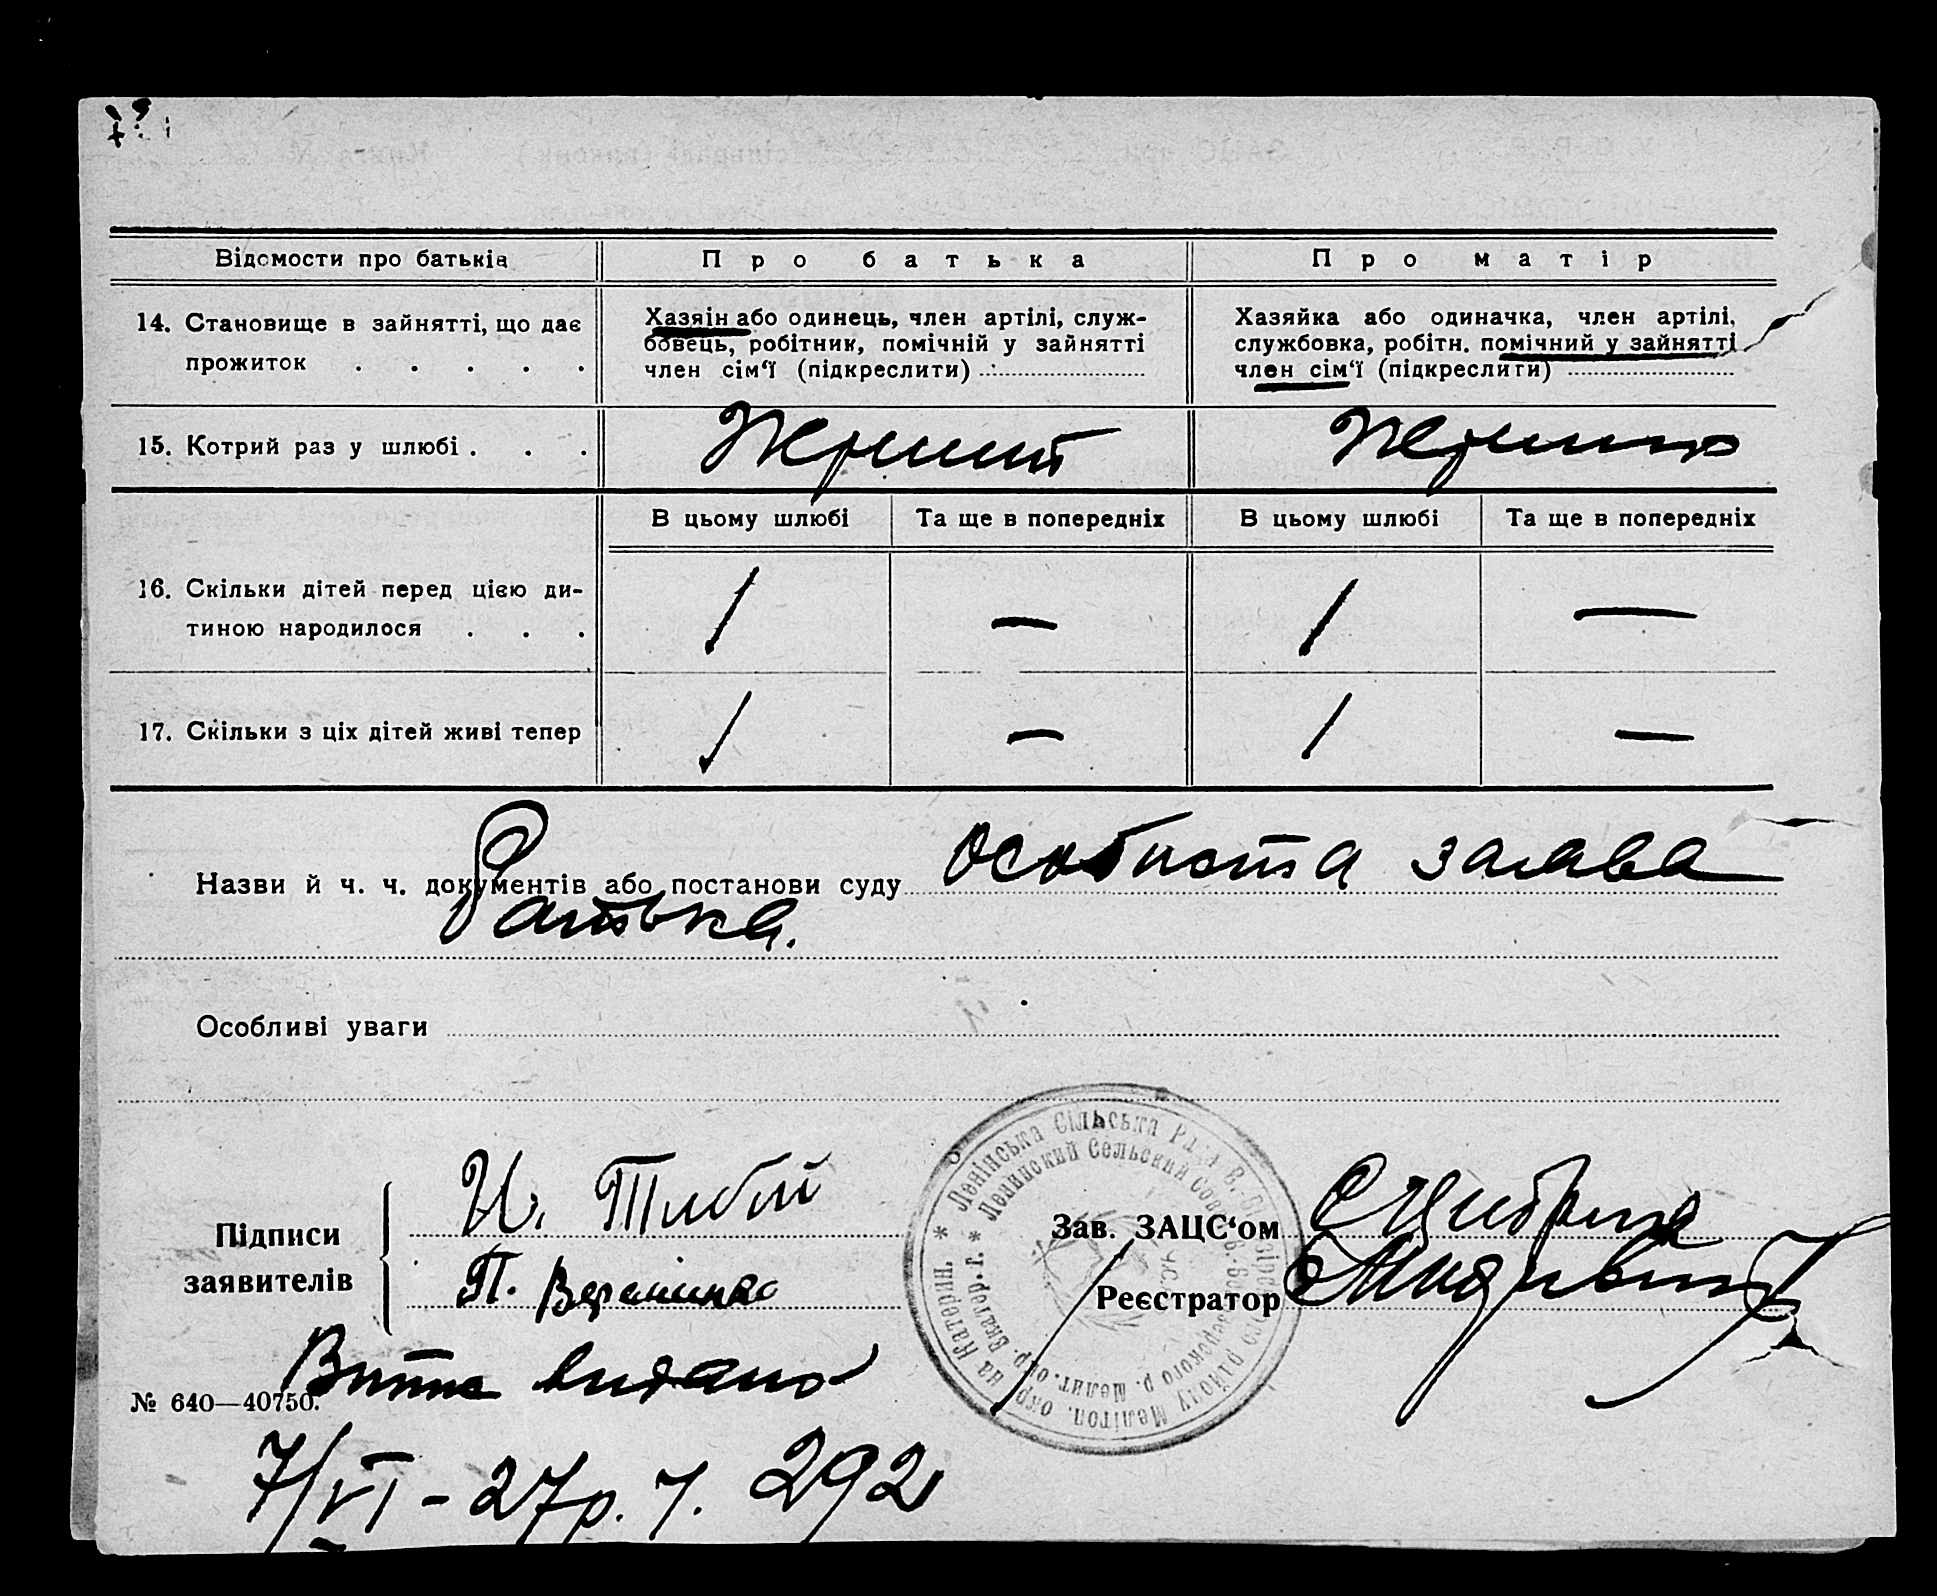 Відомости про батьків
Про батька
Про матір
14. Становище в зайнятті, що дає
прожиток . . . . .
Хазяін або одинець, член артілі, служ-
бовець, робітник, помічній у зайнятті
член сім‘ї (підкреслити)
Хазяйка або одиначка, член артілі,
службовка, робітн. помічний у зайнятті
член сім‘ї (підкреслити)
15. Котрий раз у шлюбі . . .
В цьому шлюбі
Та ще в попередніх
В цьому шлюбі
Та ще в попередніх
16. Скільки дітей перед цією ди-
тиною народилося . . .
1 — 1 —
17. Скільки з ціх дітей живі тепер
1 — 1 —
Назви й ч. ч. документів або постанови суду особиста заява
батька.
Особливі уваги
Підписи
заявителів
И.
П.
Ленінська Сільська Рада
Ленинский Сельский Совет
Зав. ЗАЦС‘ом
Реєстратор
видано
№ 640—40750.
7/VI - 27 р. ч. 292